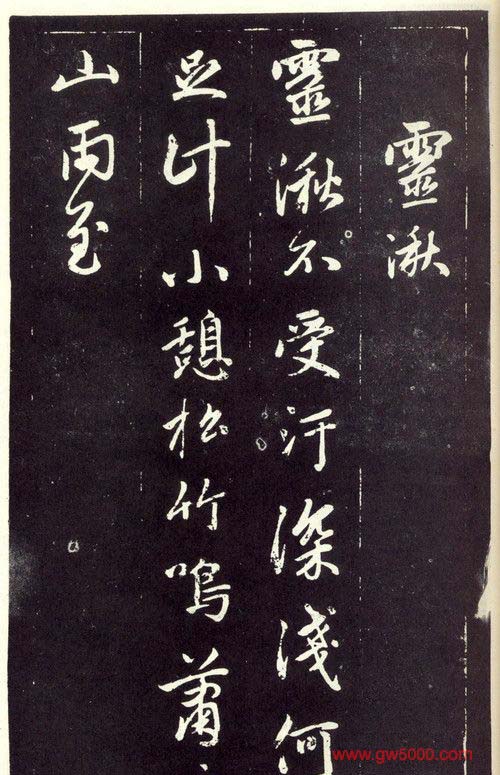 靈湫
靈湫不受汙深淺何
足计小憩松竹鳴蕭
山雨至
www.gw5000.com